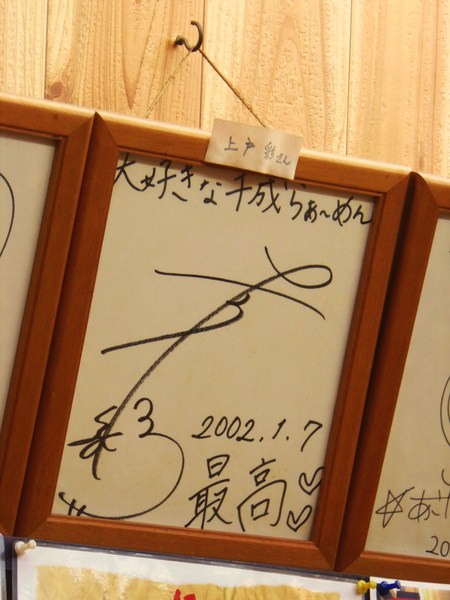 上戸 彩さん
大好きな千成らぁ〜めん
彩
2002.1.7
最高♡♡
☆あ
20